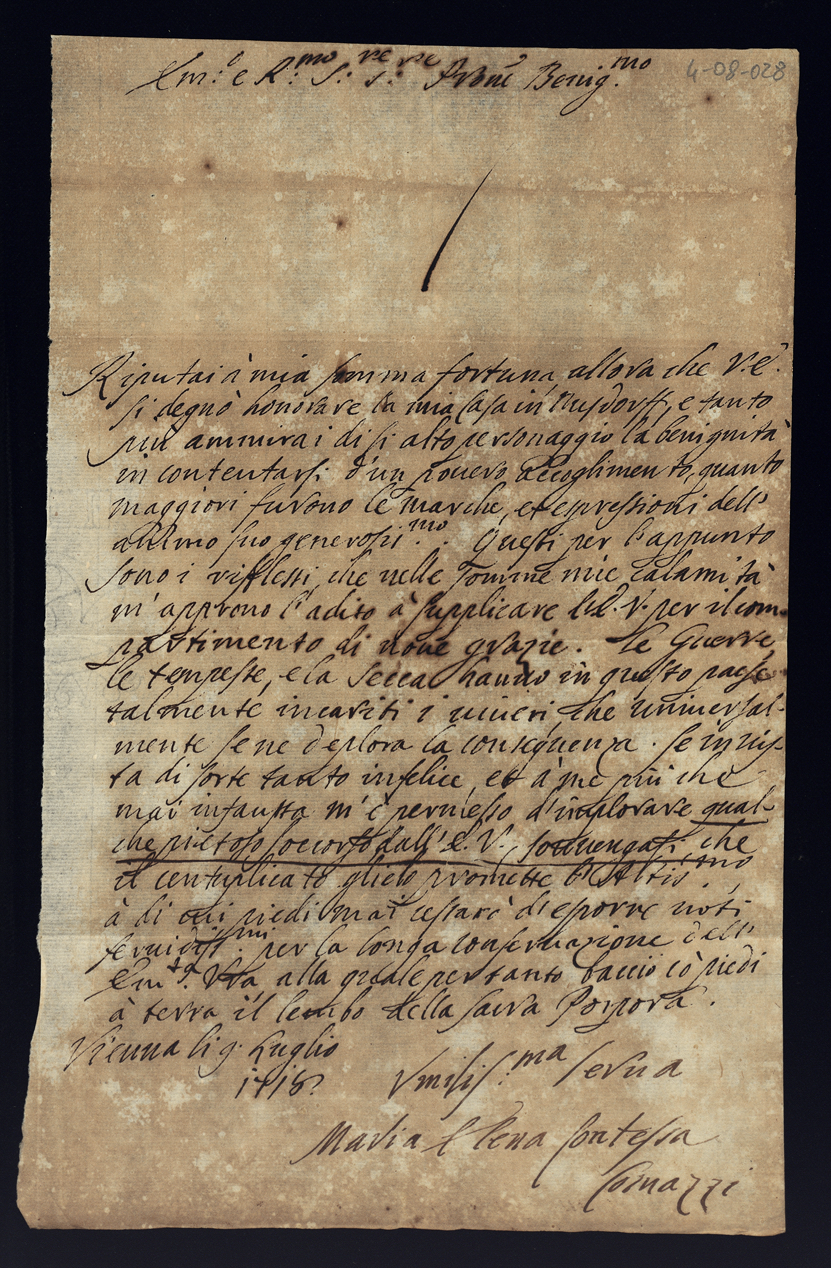 Em:o e R:mo S:re S:re Prone Benig:mo
4-08-028
Riputai à mia somma fortuna, allora che V.E.
si degnò honorare la mia Casa in Nusdorff, e tanto
più ammirai di sì alto personaggio la benignità
in contentarsi d'un povero accoglimento, quanto
maggiori furono le marche, et espressioni dell'
animo suo generosis:mo. Questi per l'appunto
sono i riflessi, che nelle somme mie calamità
m'aprono l'adito à supplicare l'E.V. per il com-
partimento di nove grazie. Le Guerre,
le tempeste, e la secca hanno in questo paese
talmente incariti i viveri che universal-
mente se ne deplora la conseguenza. Se in vis-
ta di sorte tanto infelice, et à me più che
mai infausta m'è permesso d'implorare qual-
che pietoso soccorso dall'E.V., sovvengasi, che
il centuplicato glielo promette l'Altis:mo,
à di cui piedi mai cessarò d'esporre voti
fervidiss:mi per la longa conservazione dell'
Em:za Vra, alla quale per tanto baccio cò piedi
à terra il lembo della Sacra Porpora.
Vienna li 9. Luglio
1718.
Umilis:ma Serva
Maria Elena Contessa
Comazzi